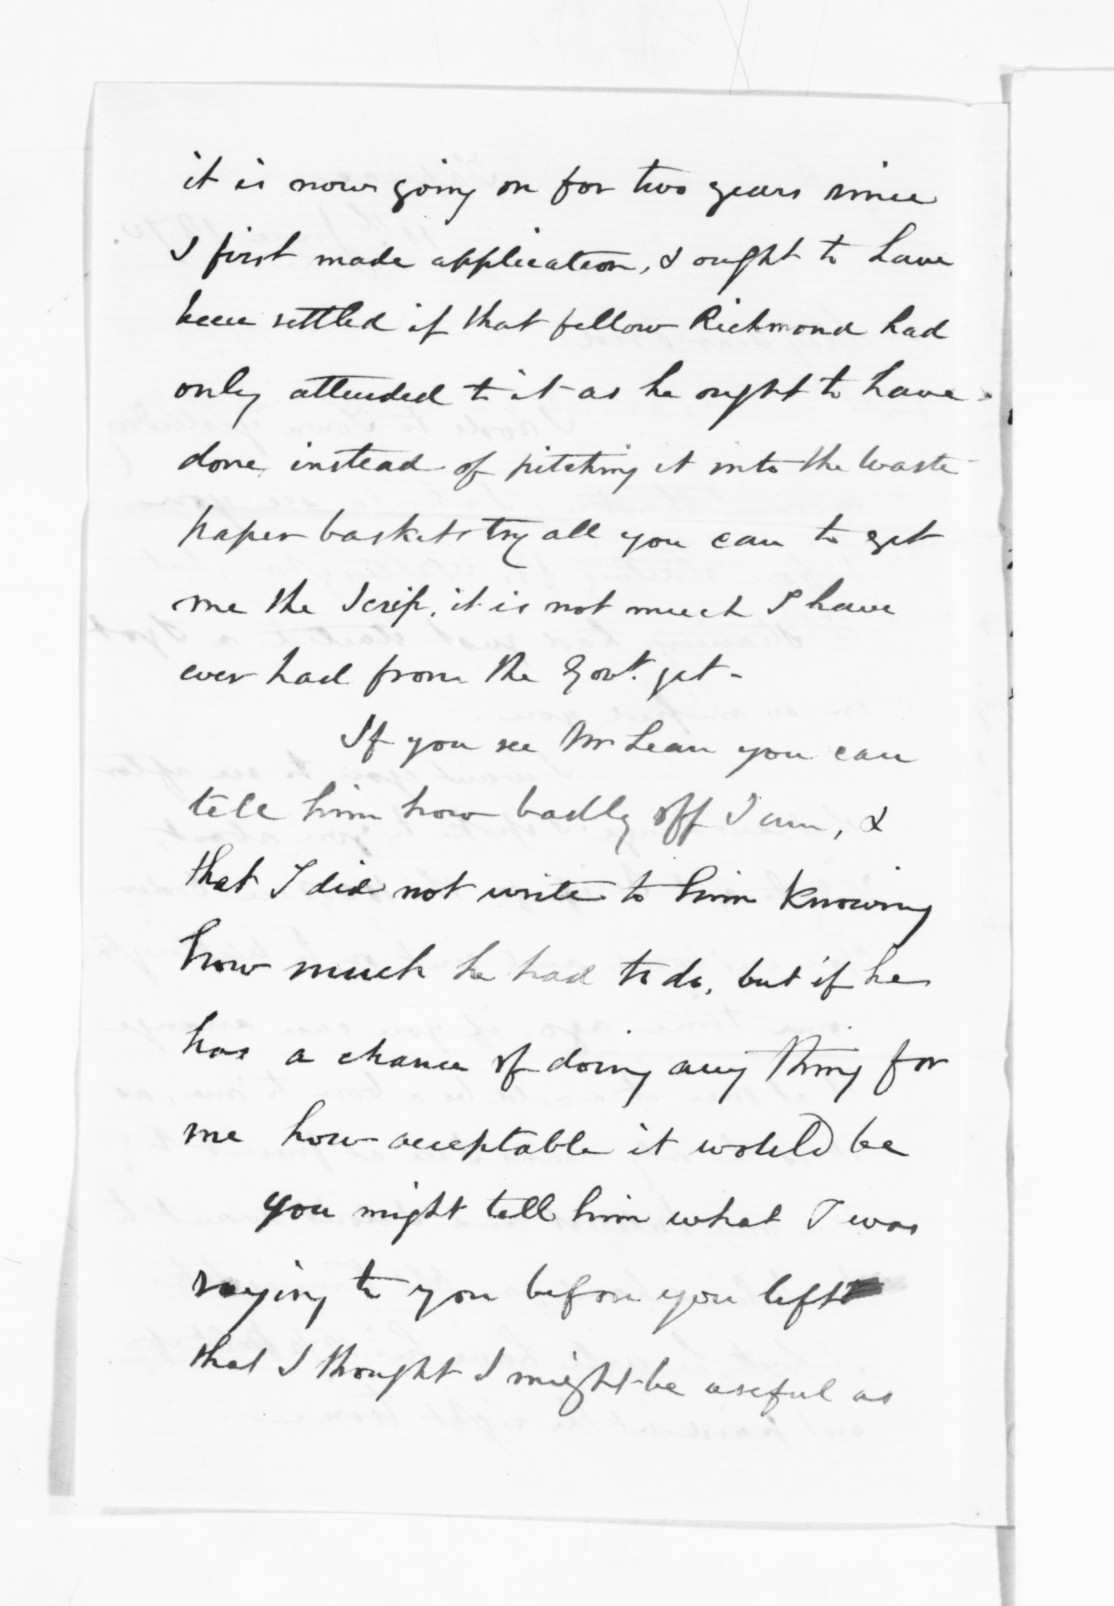 it is now going on for two years since
I first made application, & ought to have
been settled if that fellow Richmond had
only attended to it as he ought to have
done, instead of pitching it into the waste
paper basket try all you can to get
me the Scrip, it is not much I have
ever had from the Govt. yet -
If you see McLean you can
tell him how badly off I am, &
that I did not write to him knowing
how much he had to do, but if he
has a chance of doing any thing for
me how acceptable it would be
you might tell him what I was
saying to you before you left
that I thought I might be useful as